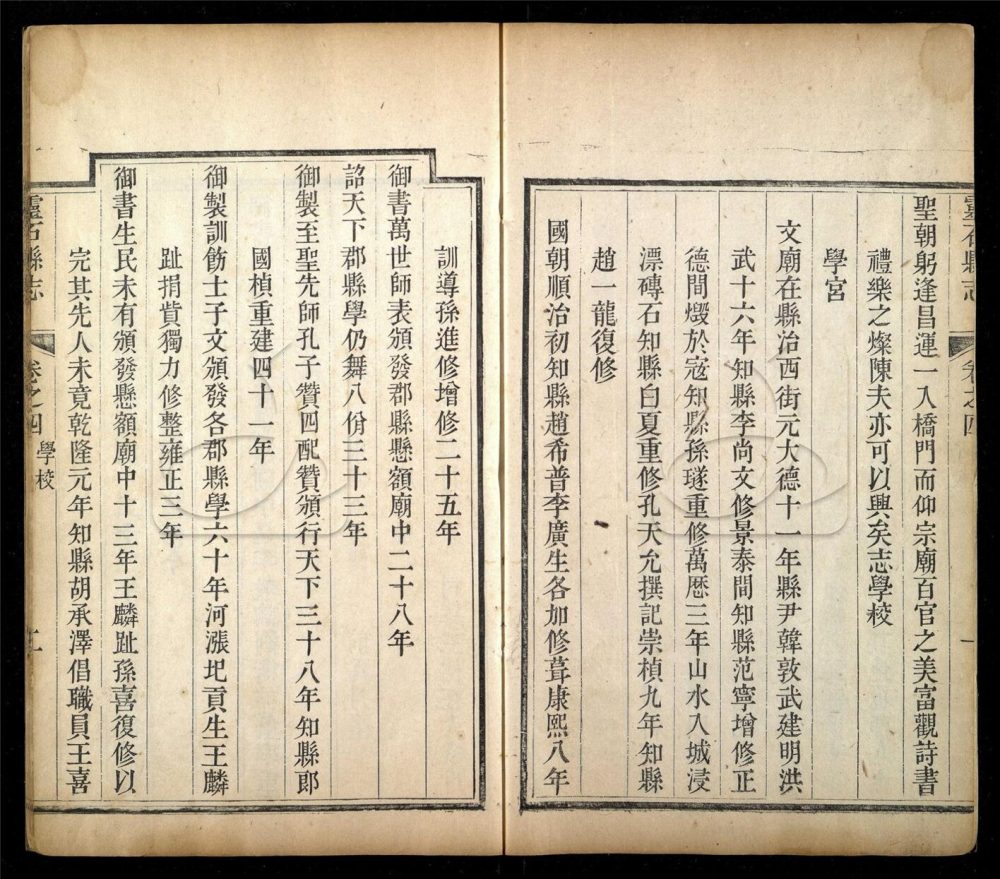 靈石縣志 卷之四 一
聖朝躬逢昌運一入橋門而仰宗廟百官之美富觀詩書
禮樂之燦陳夫亦可以興矣志學校
學宮
文廟在縣治西街元大德十一年縣尹韓敦武建明洪
武十六年知縣李尚文修景泰間知縣范寧增修正
德間燬於寇知縣孫璲重修萬歷三年山水入城浸
漂磚石知縣白夏重修孔天允撰記崇楨九年知縣
趙一龍復修
國朝順治初知縣趙希普李廣生各加修葺康熙八年
訓導孫進修增修二十五年
御書萬世師表頒發郡縣懸額廟中二十八年
詔天下郡縣學仍舞八佾三十三年
御製至聖先師孔子贊四配贊頒行天下三十八年知縣郎
國楨重建四十一年
御製訓飭士子文頒發各郡縣學六十年河漲圯貢生王麟
趾捐貲獨力修整雍正三年
御書生民未有頒發懸額廟中十三年王麟趾孫喜復修以
完其先人未竟乾隆元年知縣胡承澤倡職員王喜
靈石縣志 卷之四 學校